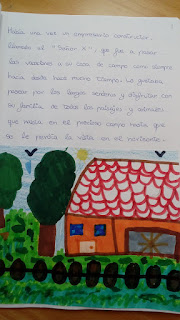 Había una vez un empresario constructor,
llamado el "Señor X", que fue a pasar
las vacaciones a su casa de campo como siempre
hacía desde hace mucho tiempo. Le gustaba
pasear por los largos senderos y disfrutar con
su familia de todos los paisajes y animales
que nacía en el precioso campo hasta que
se le perdía la vista en el horizonte.